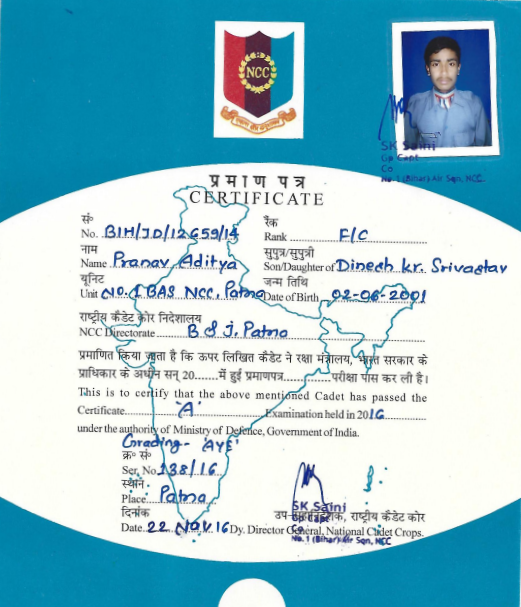 NCC
SK Saini
Gp Capt
Co
No. 1 (Bihar) Air Sqn, NCC
प्रमाण पत्र
CERTIFICATE
सं० रैंक
No. BIH/JD/12659/14 Rank F/C
नाम सुपुत्र/सुपुत्री
Name Pranav Aditya Son/Daughter of Dinesh kr. Srivastav
यूनिट जन्म तिथि
Unit No. 1 BAS NCC, Patna Date of Birth 02-06-2001
राष्ट्रीय कैडेट कोर निदेशालय
NCC Directorate B & J, Patna
प्रमाणित किया जाता है कि ऊपर लिखित कैडेट ने रक्षा मंत्रालय, भारत सरकार के
प्राधिकार के अधीन सन् 20.......में हुई प्रमाणपत्र.............परीक्षा पास कर ली है।
This is to certify that the above mentioned Cadet has passed the
Certificate 'A' Examination held in 2016
under the authority of Ministry of Defence, Government of India.
Grading- 'AYE'
क्र० सं०
Ser. No. 138/16
स्थान
Place Patna
SK Saini
Gp Capt
दिनांक उप-महानिदेशक, राष्ट्रीय कैडेट कोर
Co
Date. 22 NOV 16 Dy. Director General, National Cadet Crops.
No. 1 (Bihar) Air Sqn, NCC